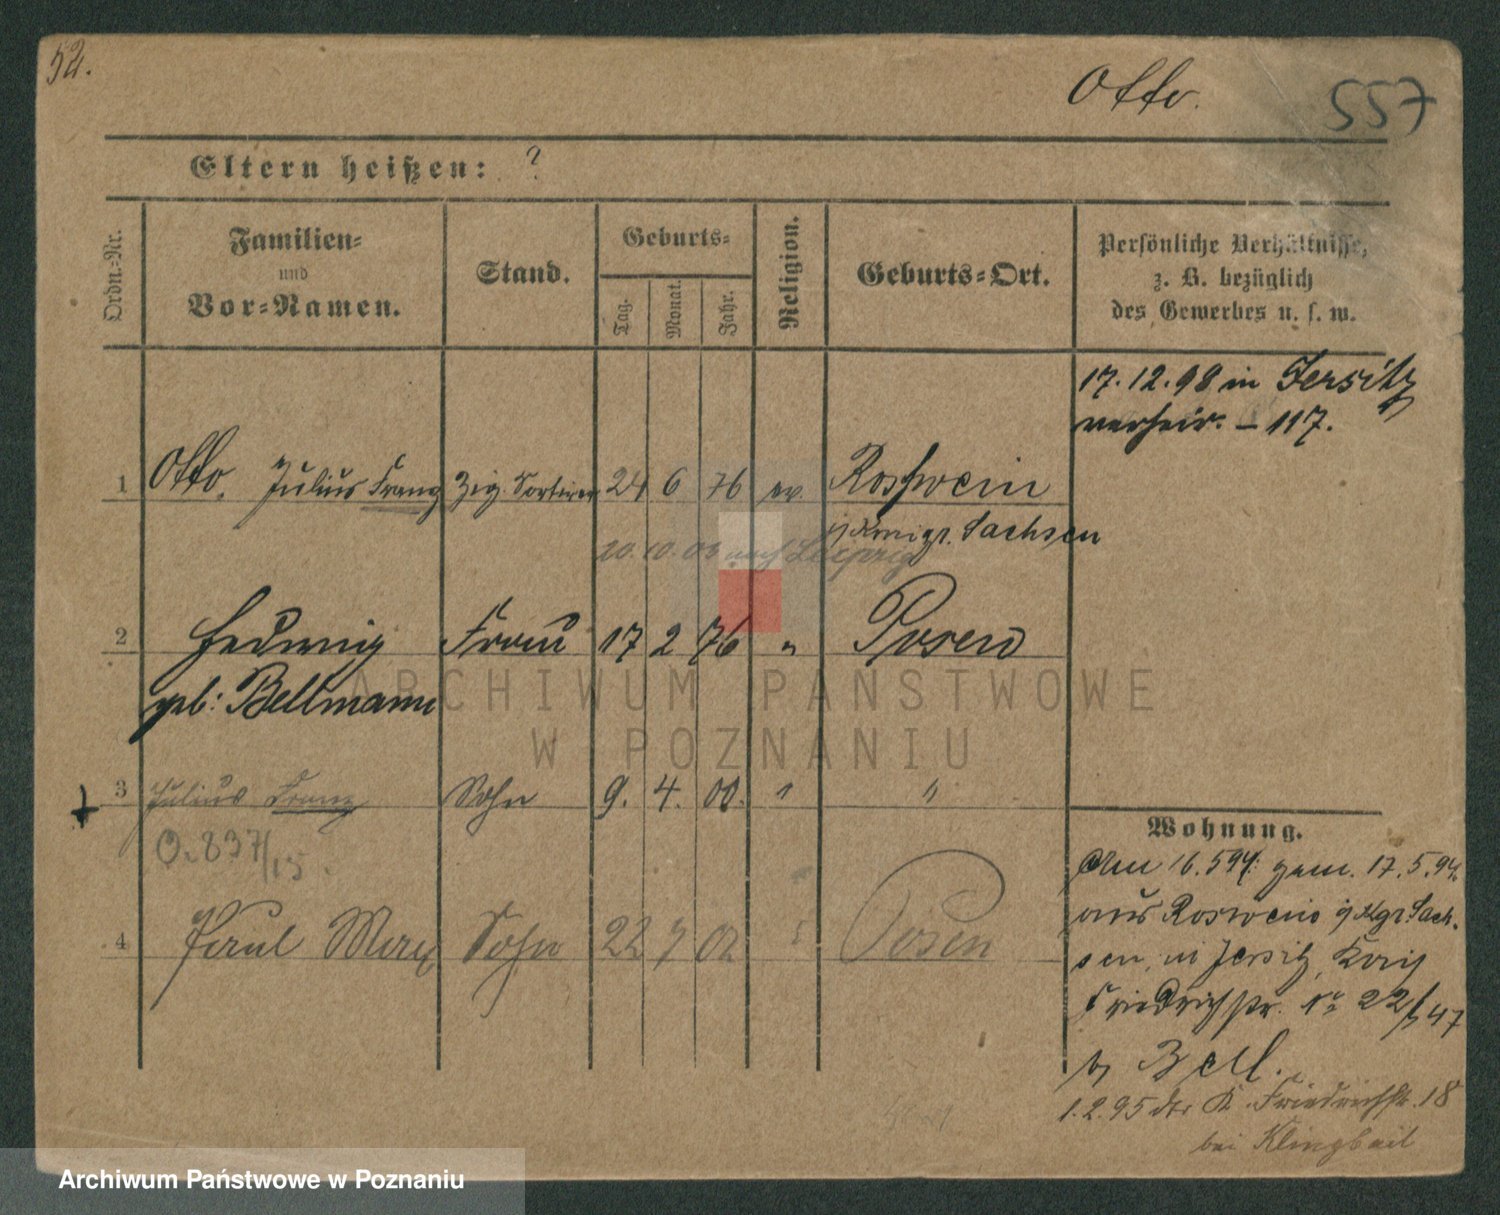 52.
Otto.
557
Eltern heißen: ?
Ordn.-Nr.
Familien-
und
Vor-Namen.
Stand.
Geburts-
Tag.
Monat.
Jahr.
Religion.
Geburts-Ort.
Persönliche Verhältnisse,
z. B. bezüglich
des Gewerbes u. s. w.
17.12.98 in Jersitz
verheir. – 117.
1 Otto, Julius Franz Zig. Sortirer 24 6 76 ev. Rosswein
Königr. Sachsen
10.10.05 nach Leipzig
2 Hedwig Frau 17 2 76 " Posen
geb: Bellmann
3 Julius Franz Sohn 9. 4. 00. " "
O. 837/15.
4 Paul Max Sohn 22 9 02 Posen
Wohnung.
Am 16.5 94: gem. 17.5.94.
aus Roswein Kgr. Sach-
sen, in Jersitz,
Friedrichstr. 22/47
b/ Bell.
1.2.95 K. Friedrichstr. 18
bei Klingbeil
ARCHIWUM PAŃSTWOWE
W POZNANIU
Archiwum Państwowe w Poznaniu